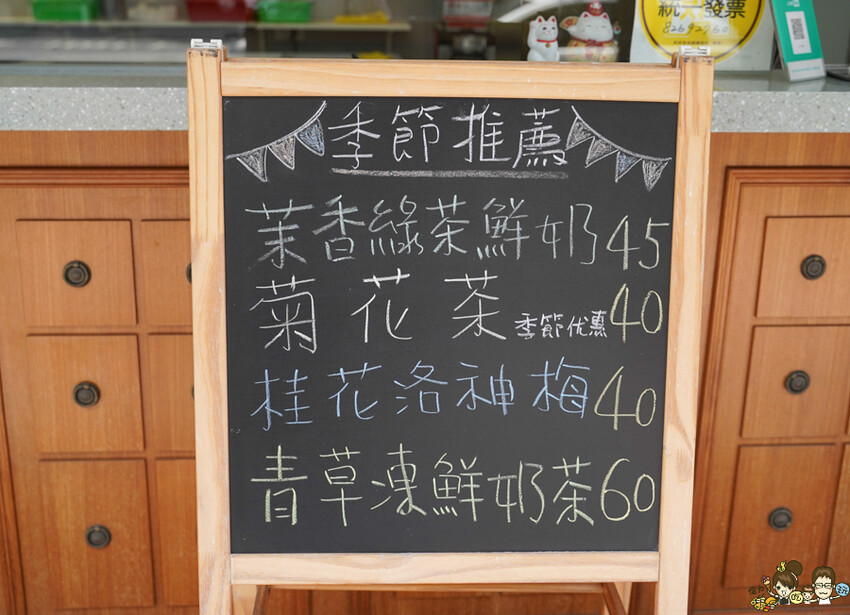 統一發票
82692760
季節推薦
茉香綠茶鮮奶45
菊花茶 季節优惠40
桂花洛神梅40
青草凍鮮奶茶60